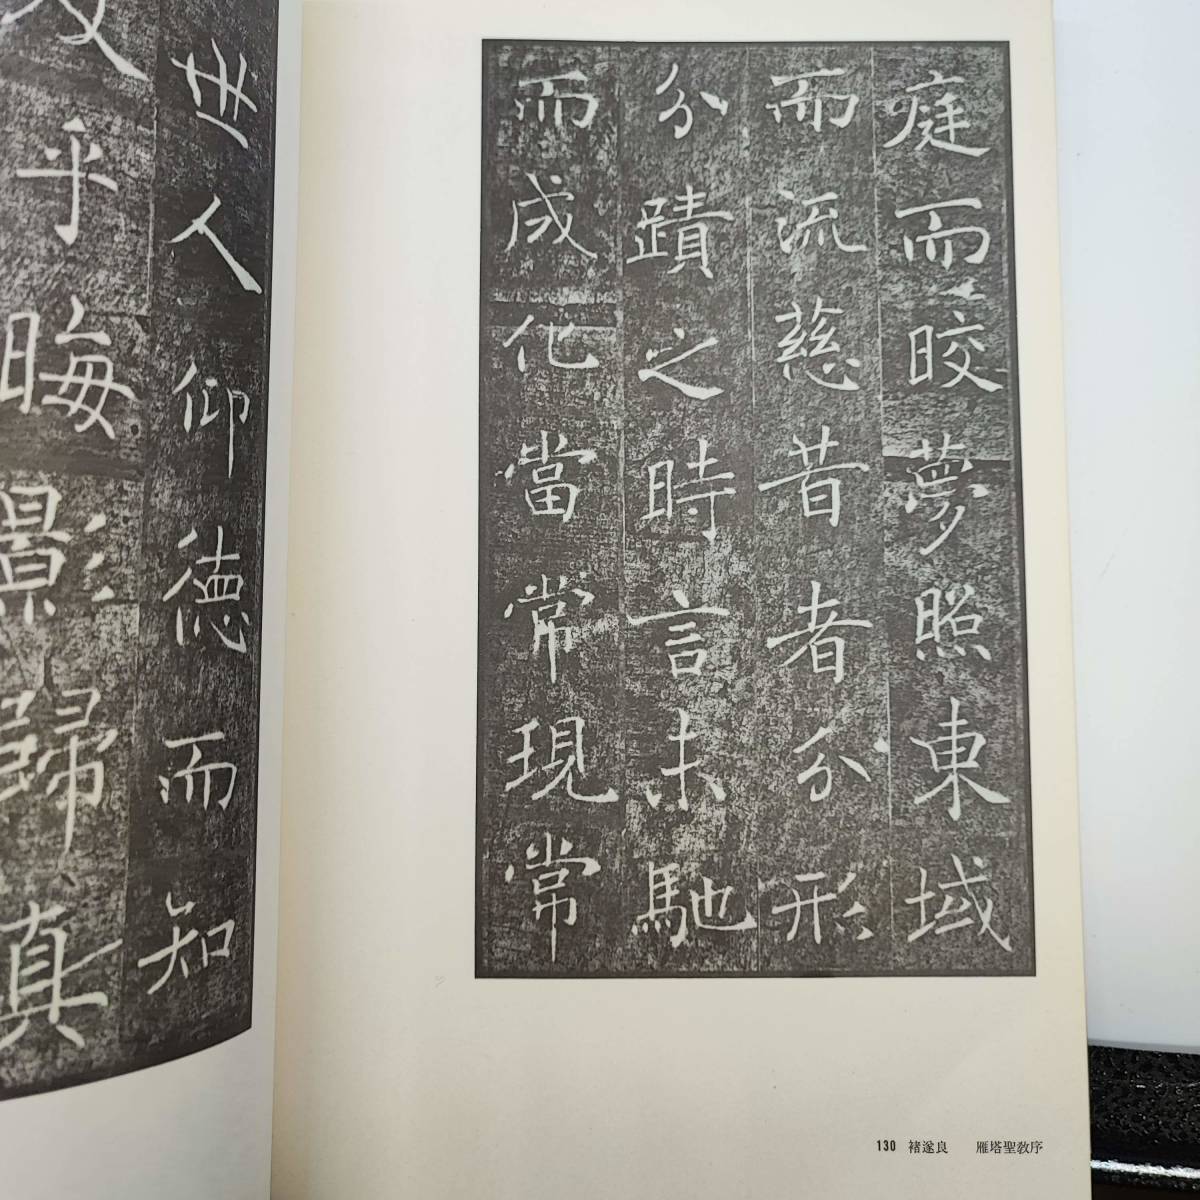 庭而晈夢照東域
而流慈昔者分形
分蹟之時言未馳
而成化當常現常
世人仰德而知
及乎晦影歸真
130 褚遂良 雁塔聖教序